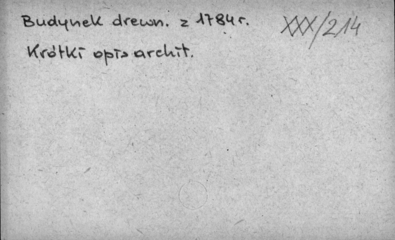 Budynek drewn. z 1784 r. XXX/214
Krótki opis archit.